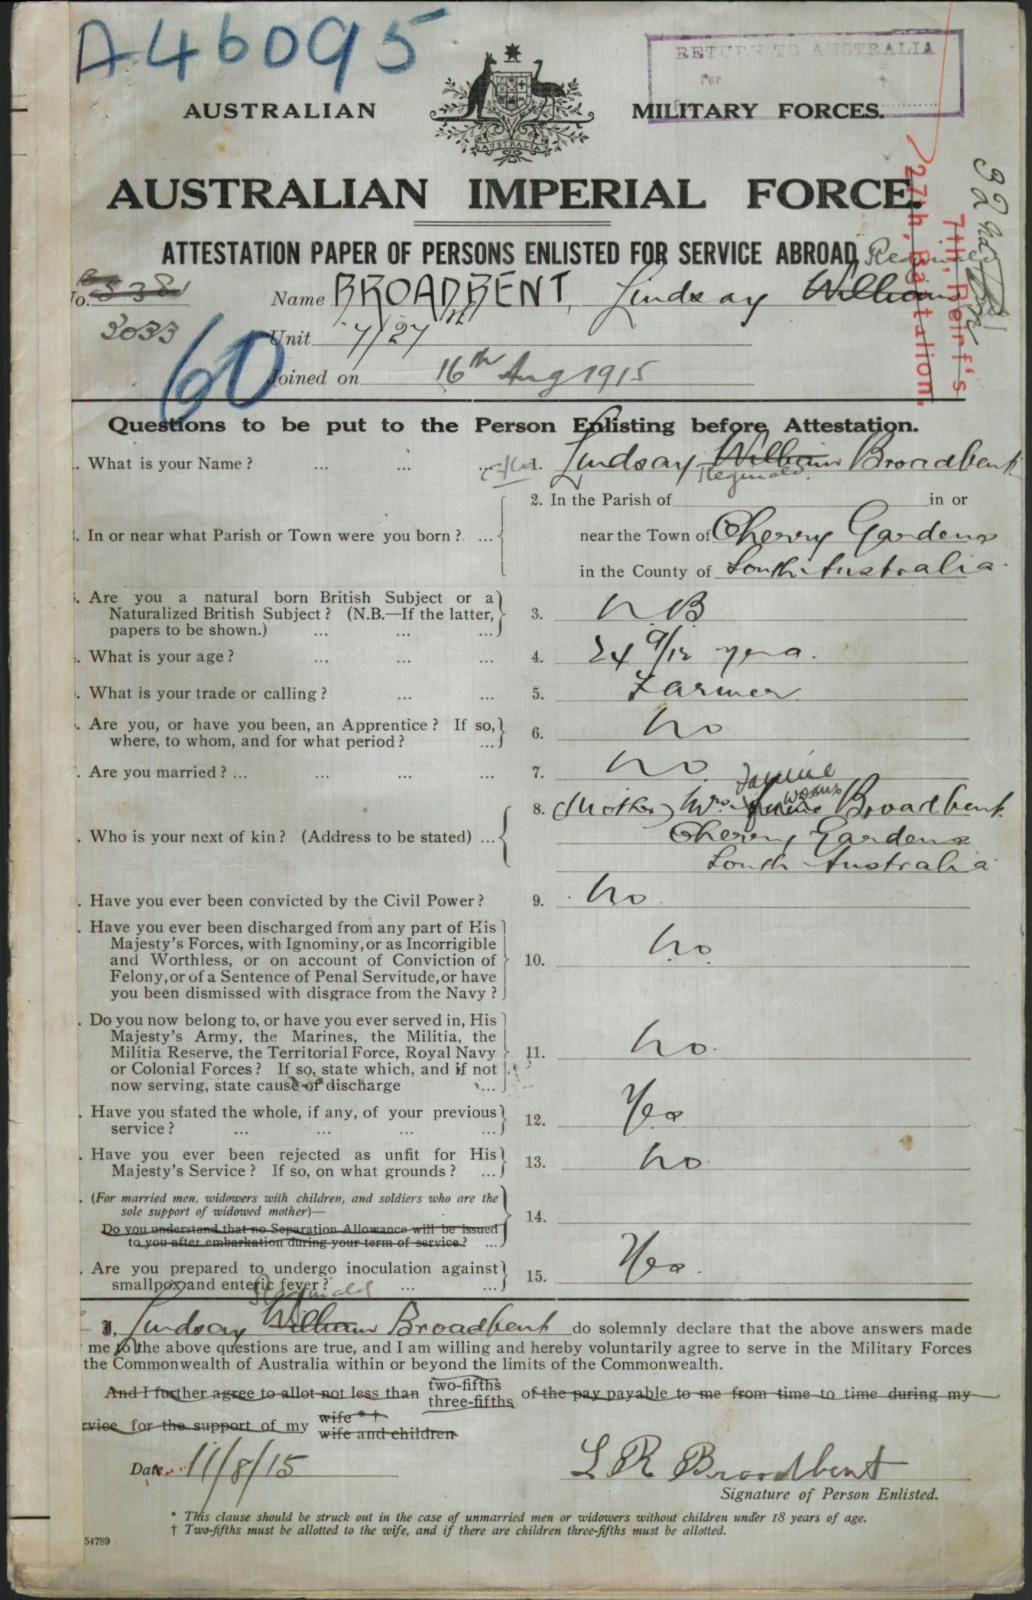 A46095
RETURN TO AUSTRALIA
Per
AUSTRALIAN MILITARY FORCES.
AUSTRALIA
AUSTRALIAN IMPERIAL FORCE.
27th. Battalion.
7th. Reinf's
ATTESTATION PAPER OF PERSONS ENLISTED FOR SERVICE ABROAD
Reginald
No. 5381 Name BROADBENT, Lindsay William
3033 Unit 7/27th
60 Joined on 16th Aug 1915
Questions to be put to the Person Enlisting before Attestation.
. What is your Name? ... ... ... 1. Lindsay William Broadbent
Reginald
2. In the Parish of in or
. In or near what Parish or Town were you born? ... near the Town of Cherry Gardens
in the County of South Australia
. Are you a natural born British Subject or a
Naturalized British Subject? (N.B.—If the latter, 3. NB
papers to be shown.) ... ... ...
. What is your age? ... ... ... 4. 24 9/12 yrs.
. What is your trade or calling? ... ... 5. Farmer
. Are you, or have you been, an Apprentice? If so, 6. No
where, to whom, and for what period? ...
. Are you married? ... ... ... ... 7. No
8. (Mother) Mrs Broadbent
. Who is your next of kin? (Address to be stated) ... Cherry Gardens
South Australia
. Have you ever been convicted by the Civil Power? 9. No
. Have you ever been discharged from any part of His
Majesty's Forces, with Ignominy, or as Incorrigible
and Worthless, or on account of Conviction of 10. No
Felony, or of a Sentence of Penal Servitude, or have
you been dismissed with disgrace from the Navy?
. Do you now belong to, or have you ever served in, His
Majesty's Army, the Marines, the Militia, the
Militia Reserve, the Territorial Force, Royal Navy 11. No
or Colonial Forces? If so, state which, and if not
now serving, state cause of discharge ...
. Have you stated the whole, if any, of your previous 12. Yes
service? ... ... ... ...
. Have you ever been rejected as unfit for His 13. No
Majesty's Service? If so, on what grounds? ...
. (For married men, widowers with children, and soldiers who are the
sole support of widowed mother)— 14.
Do you understand that no Separation Allowance will be issued
to you after embarkation during your term of service? ...
. Are you prepared to undergo inoculation against 15. Yes.
smallpox and enteric fever? ... ...
Reginald
I, Lindsay William Broadbent do solemnly declare that the above answers made
me to the above questions are true, and I am willing and hereby voluntarily agree to serve in the Military Forces
the Commonwealth of Australia within or beyond the limits of the Commonwealth.
And I further agree to allot not less than two-fifths three-fifths of the pay payable to me from time to time during my
rvice for the support of my wife * † wife and children
Date 11/8/15 L R Broadbent
Signature of Person Enlisted.
* This clause should be struck out in the case of unmarried men or widowers without children under 18 years of age.
† Two-fifths must be allotted to the wife, and if there are children three-fifths must be allotted.
54789